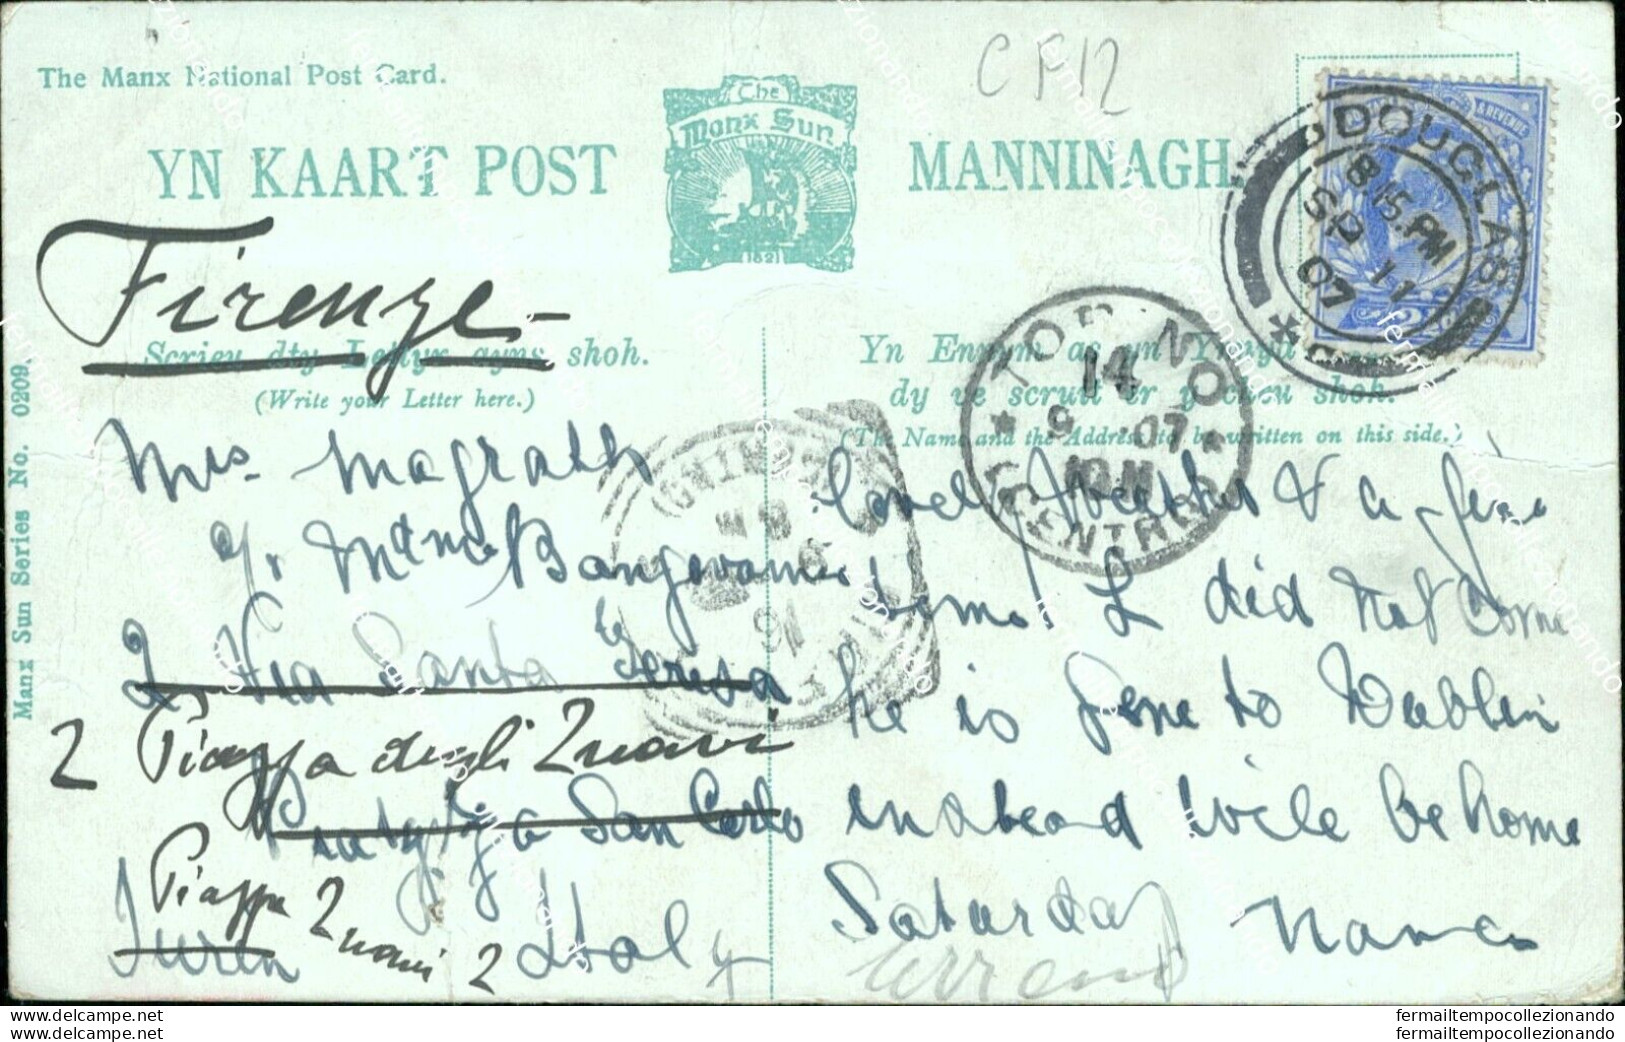 The Manx National Post Card.
C F 12
YN KAART POST
The
Manx Sun
1821
MANNINAGH.
DOUGLAS
8.15 PM
SP 11
07
Firenze
Scrieu dty Lettyr ayns shoh.
(Write your Letter here.)
Yn Ennym as yn
dy ve scruit er y cheu shoh.
(The Name and the Address to be written on this side.)
TORINO
14
9 .07
10M
CENTRO
Manx Sun Series No. 0209.
Mrs Magrath
lovely weather & a fine
time. L did not come
2 Via Santa Teresa
he is gone to Dublin
2 Piazza degli Zuavi
Piazza San Carlo
instead will be home
Piazza Zuavi 2
Turin Italy
Saturday